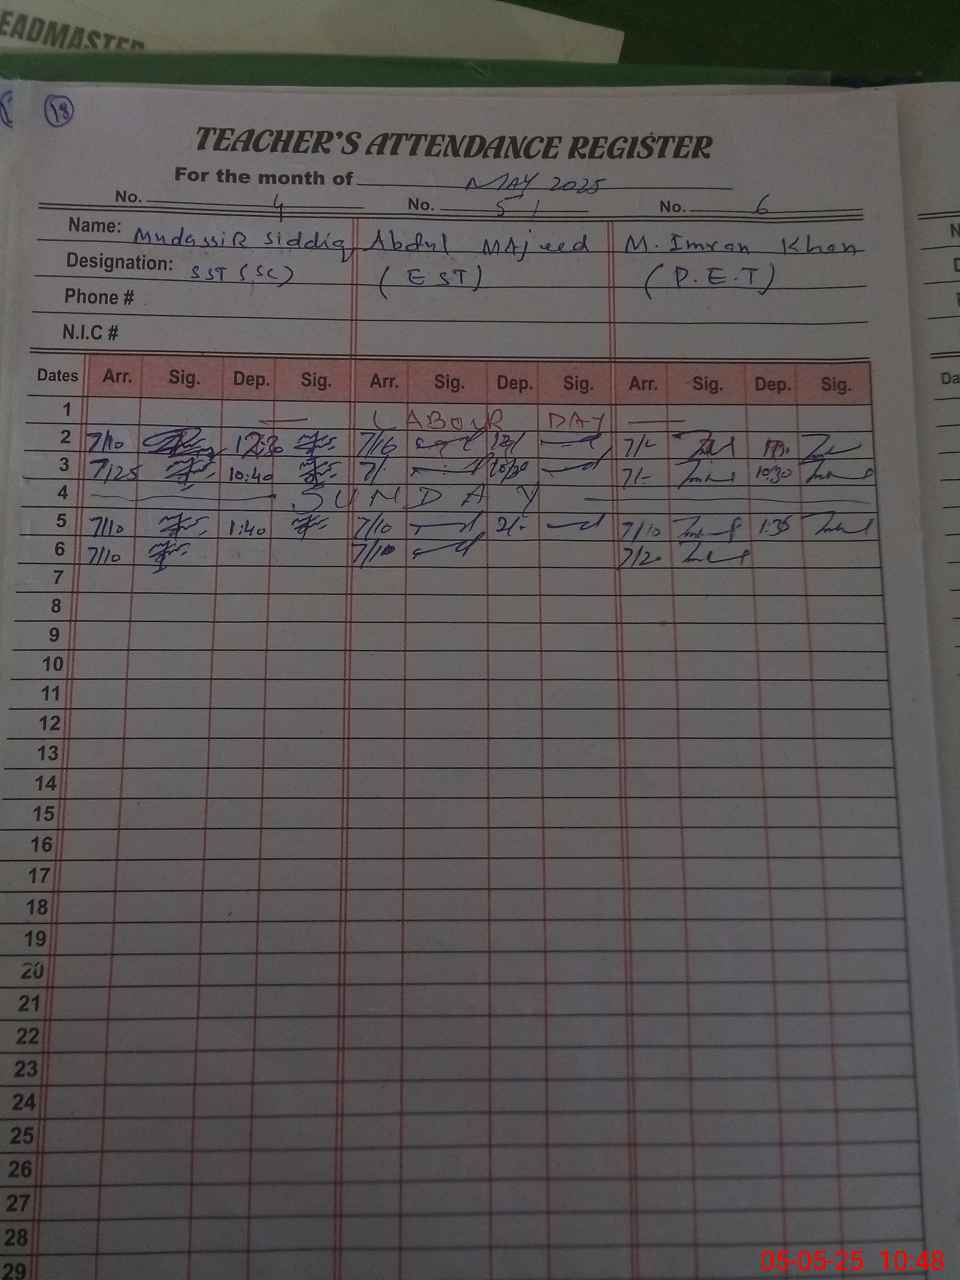 EADMASTER
18
TEACHER'S ATTENDANCE REGISTER
For the month of MAY 2025
No. 4 No. 5 No. 6
Name: Mudassir Siddiq Abdul Majeed M. Imran Khan
Designation: SST (SC) (EST) (P.E.T)
Phone #
N.I.C #
Dates Arr. Sig. Dep. Sig. Arr. Sig. Dep. Sig. Arr. Sig. Dep. Sig.
1 LABOUR DAY
2 7/10 7/10
3 7/25 10:40 10/30 10:30
4 SUNDAY
5 7/10 1:40 7/10 2/- 7/10 1:35
6 7/10 7/10 7/20
7
8
9
10
11
12
13
14
15
16
17
18
19
20
21
22
23
24
25
26
27
28
29
05-05-25 10:48